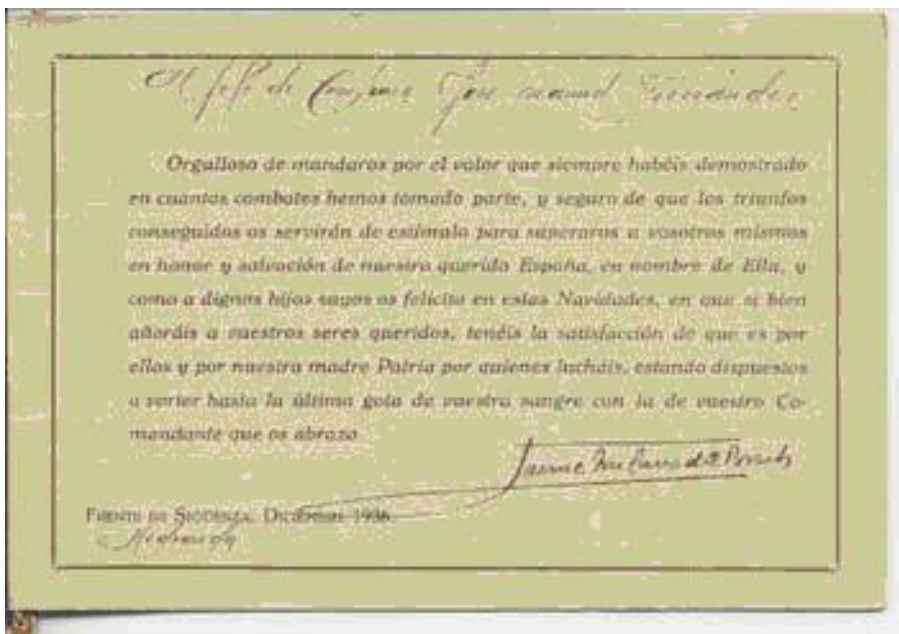 Al Jefe de Centuria José Manuel Fernández
Orgulloso de mandaros por el valor que siempre habéis demostrado
en cuantos combates hemos tomado parte, y seguro de que los triunfos
conseguidos os servirán de estímulo para superaros a vosotros mismos
en honor y salvación de nuestra querida España, en nombre de Ella, y
como a dignos hijos suyos os felicito en estas Navidades, en que si bien
añoráis a vuestros seres queridos, tenéis la satisfacción de que es por
ellos y por nuestra madre Patria por quienes lucháis, estando dispuestos
a verter hasta la última gota de vuestra sangre con la de vuestro Co-
mandante que os abraza
Jaime
FRENTE DE SIGÜENZA, DICIEMBRE 1936.